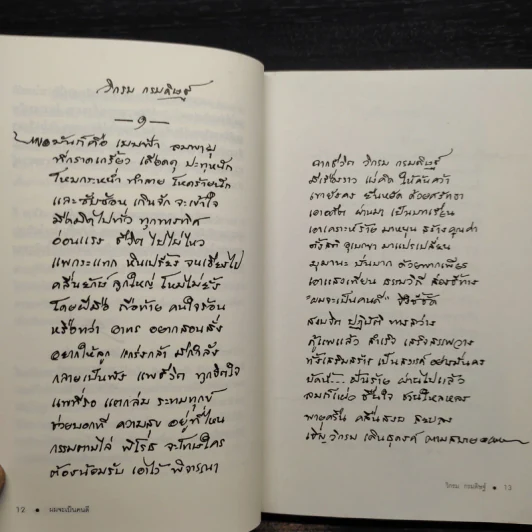 วิกรม กรมดิษฐ์
— ๑ —
มันก็คือ เมฆฟ้า ลมพายุ
ที่กราดเกรี้ยว เดือดดุ ปะทุหนัก
โหมกระหน่ำ ทำลาย โหดร้ายนัก
และซับซ้อน เกินจัก จะเข้าใจ
มืดมิดไปทั่ว ทุกทางทิศ
อ่อนแรง ชีวิต ไปไม่ไหว
แพกระแทก หินเปรี้ยง จนเอียงไป
คลื่นยักษ์ ลูกใหญ่ โหมไม่ยั้ง
โดยฝีมือ ถือท้าย คนใจร้อน
หรือทว่า อาทร อยากสอนสั่ง
อยากให้ลูก แกร่งกล้า มีกำลัง
กลายเป็นพัง แพชีวิต ทุกจิตใจ
แพที่รอ แตกล่ม ระทมทุกข์
ช่วยบอกที ความสุข อยู่ที่ไหน
กรรมตามไล่ พิโรธ จะโทษใคร
ต้องน้อมรับ เอาไว้ พิจารณา
12 • ผมจะเป็นคนดี
จากชีวิต วิกรม กรมดิษฐ์
มีเรื่องราว แง่คิด ให้ค้นคว้า
เขายังคง ยืนหยัด ด้วยศรัทธา
เอาอดีต ผ่านมา เป็นบทเรียน
เอาเคราะห์ร้าย มาหนุน สร้างคุณค่า
มาแปรเปลี่ยน
มุมานะ บั่นบาก ด้วยพากเพียร
เอาแสงเทียน ธรรมวิถี ส่องชี้ทาง
"ผมจะเป็นคนดี"
ปฏิบัติ ทางสว่าง
กู้แพแล้ว สำเร็จ เสร็จสรรพวาง
ทั้งเสริมสร้าง เป็นสะพาน
บัดนี้... ฝันร้าย ผ่านไปแล้ว
ชื่นใจ
พายครืน คลื่นสงบ
เชิญ วิกรม เดินธุดงค์ ตามสบาย
วิกรม กรมดิษฐ์ • 13